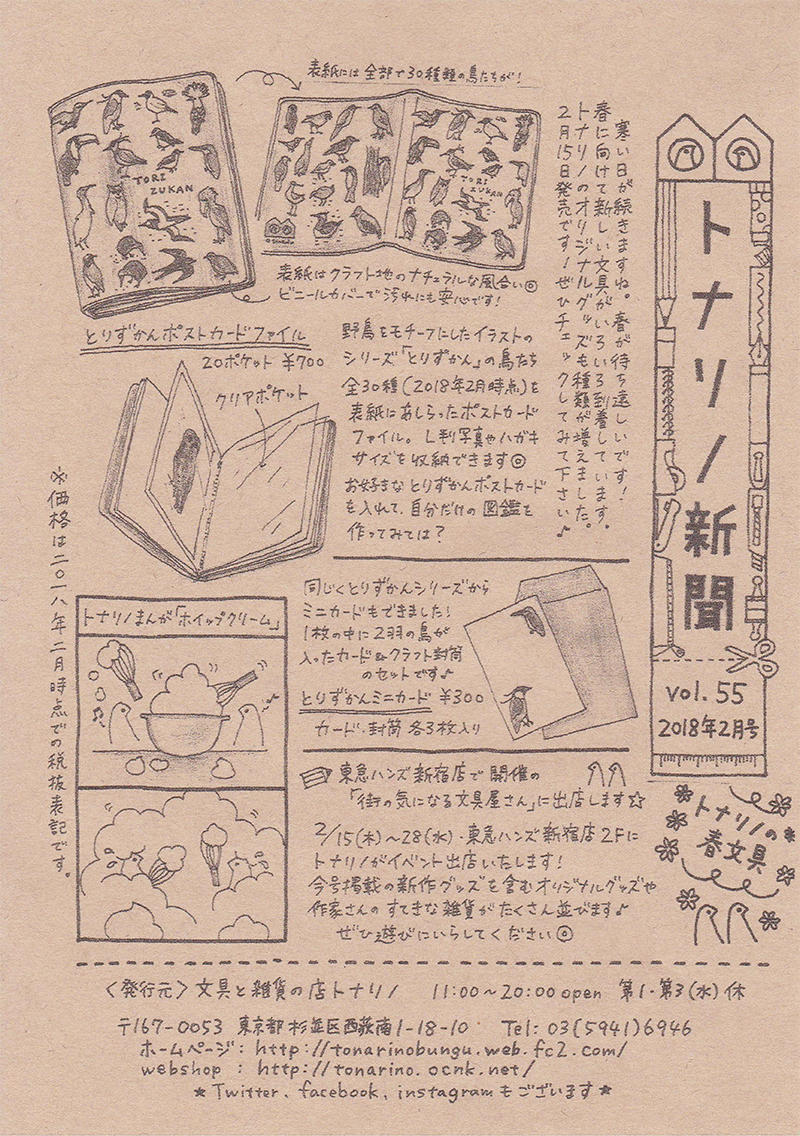 トナリノ新聞
vol. 55
2018年2月号
トナリノの
春文具
寒い日が続きますね。春が待ち遠しいです！
春に向けて新しい文具がいろいろ到着しています。
トナリノのオリジナルグッズも種類が増えました。
2月15日発売です！ぜひチェックしてみて下さい♪
表紙には全部で30種類の鳥たちが！
TORI
ZUKAN
TORI
ZUKAN
表紙はクラフト地のナチュラルな風合い◎
ビニールカバーで汚れにも安心です！
とりずかんポストカードファイル
20ポケット ¥700
クリアポケット
野鳥をモチーフにしたイラストの
シリーズ「とりずかん」の鳥たち
全30種（2018年2月時点）を
表紙にあしらったポストカード
ファイル。L判写真やハガキ
サイズを収納できます◎
お好きなとりずかんポストカード
を入れて、自分だけの図鑑を
作ってみては？
同じくとりずかんシリーズから
ミニカードもできました！
1枚の中に2羽の鳥が
入ったカード&クラフト封筒
のセットです♪
とりずかんミニカード ¥300
カード・封筒 各3枚入り
東急ハンズ新宿店で開催の
「街の気になる文具屋さん」に出店します☆
2/15(木)〜28(水)・東急ハンズ新宿店2Fに
トナリノがイベント出店いたします！
今号掲載の新作グッズを含むオリジナルグッズや
作家さんのすてきな雑貨がたくさん並びます♪
ぜひ遊びにいらしてください◎
トナリノまんが「ホイップクリーム」
※価格は二〇一八年二月時点での税抜表記です。
〈発行元〉文具と雑貨の店トナリノ 11:00〜20:00 open 第1・第3(水)休
〒167-0053 東京都杉並区西荻南1-18-10 Tel: 03(5941)6946
ホームページ: http://tonarinobungu.web.fc2.com/
webshop : http://tonarino.ocnk.net/
★Twitter、facebook、instagramもございます★